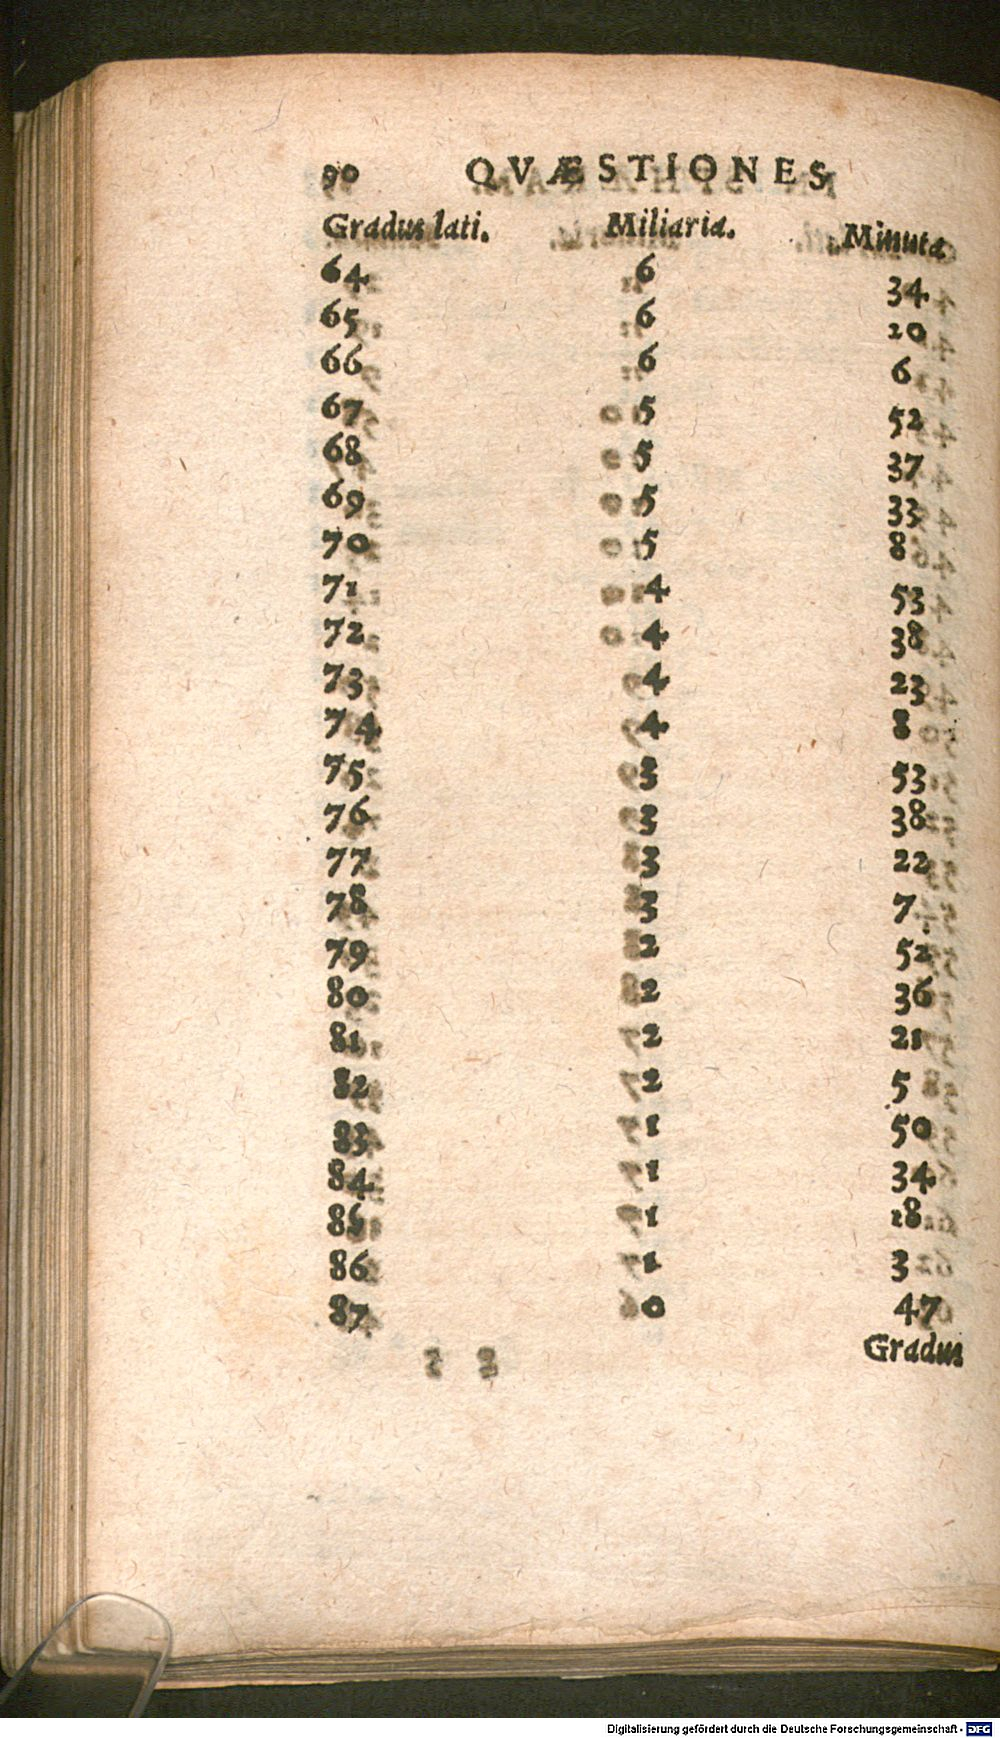 90 QVÆSTIONES
Gradus lati. Miliaria. Minuta
64 6 34
65 6 20
66 6 6
67 5 52
68 5 37
69 5 33
70 5 8
71 4 53
72 4 38
73 4 23
74 4 8
75 3 53
76 3 38
77 3 22
78 3 7
79 2 52
80 2 36
81 2 21
82 2 5
83 1 50
84 1 34
85 1 18
86 1 3
87 0 47
Gradus
Digitalisierung gefördert durch die Deutsche Forschungsgemeinschaft - DFG